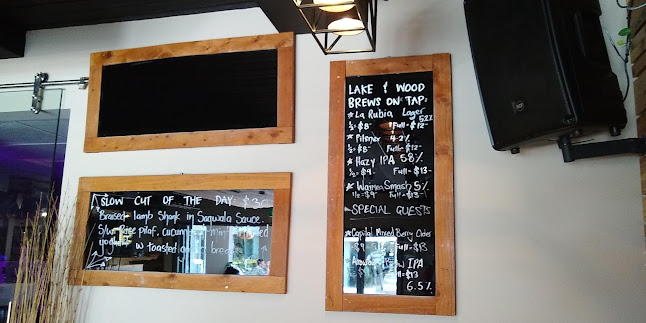 SLOW CUT OF THE DAY $3
Braised lamb Shank in Saguala Sauce.
Slow Rose pilaf, cucumber mint
yoghurt w toasted bread
LAKE & WOOD
BREWS ON TAP:
★ La Rubia Lager
5.2%
½ = $8- Full = $12-
★ Pilsner 4.2%
½ = $8- Full = $12-
★ Hazy IPA 5.8%
½ = $9 Full = $13-
★ Waimea Smash 5%
½ = $9 Full = $13-
SPECIAL GUESTS
★ Capital Mixed Berry Cider
$9 Full = $13
IPA
$9 Full = $13
6.5%